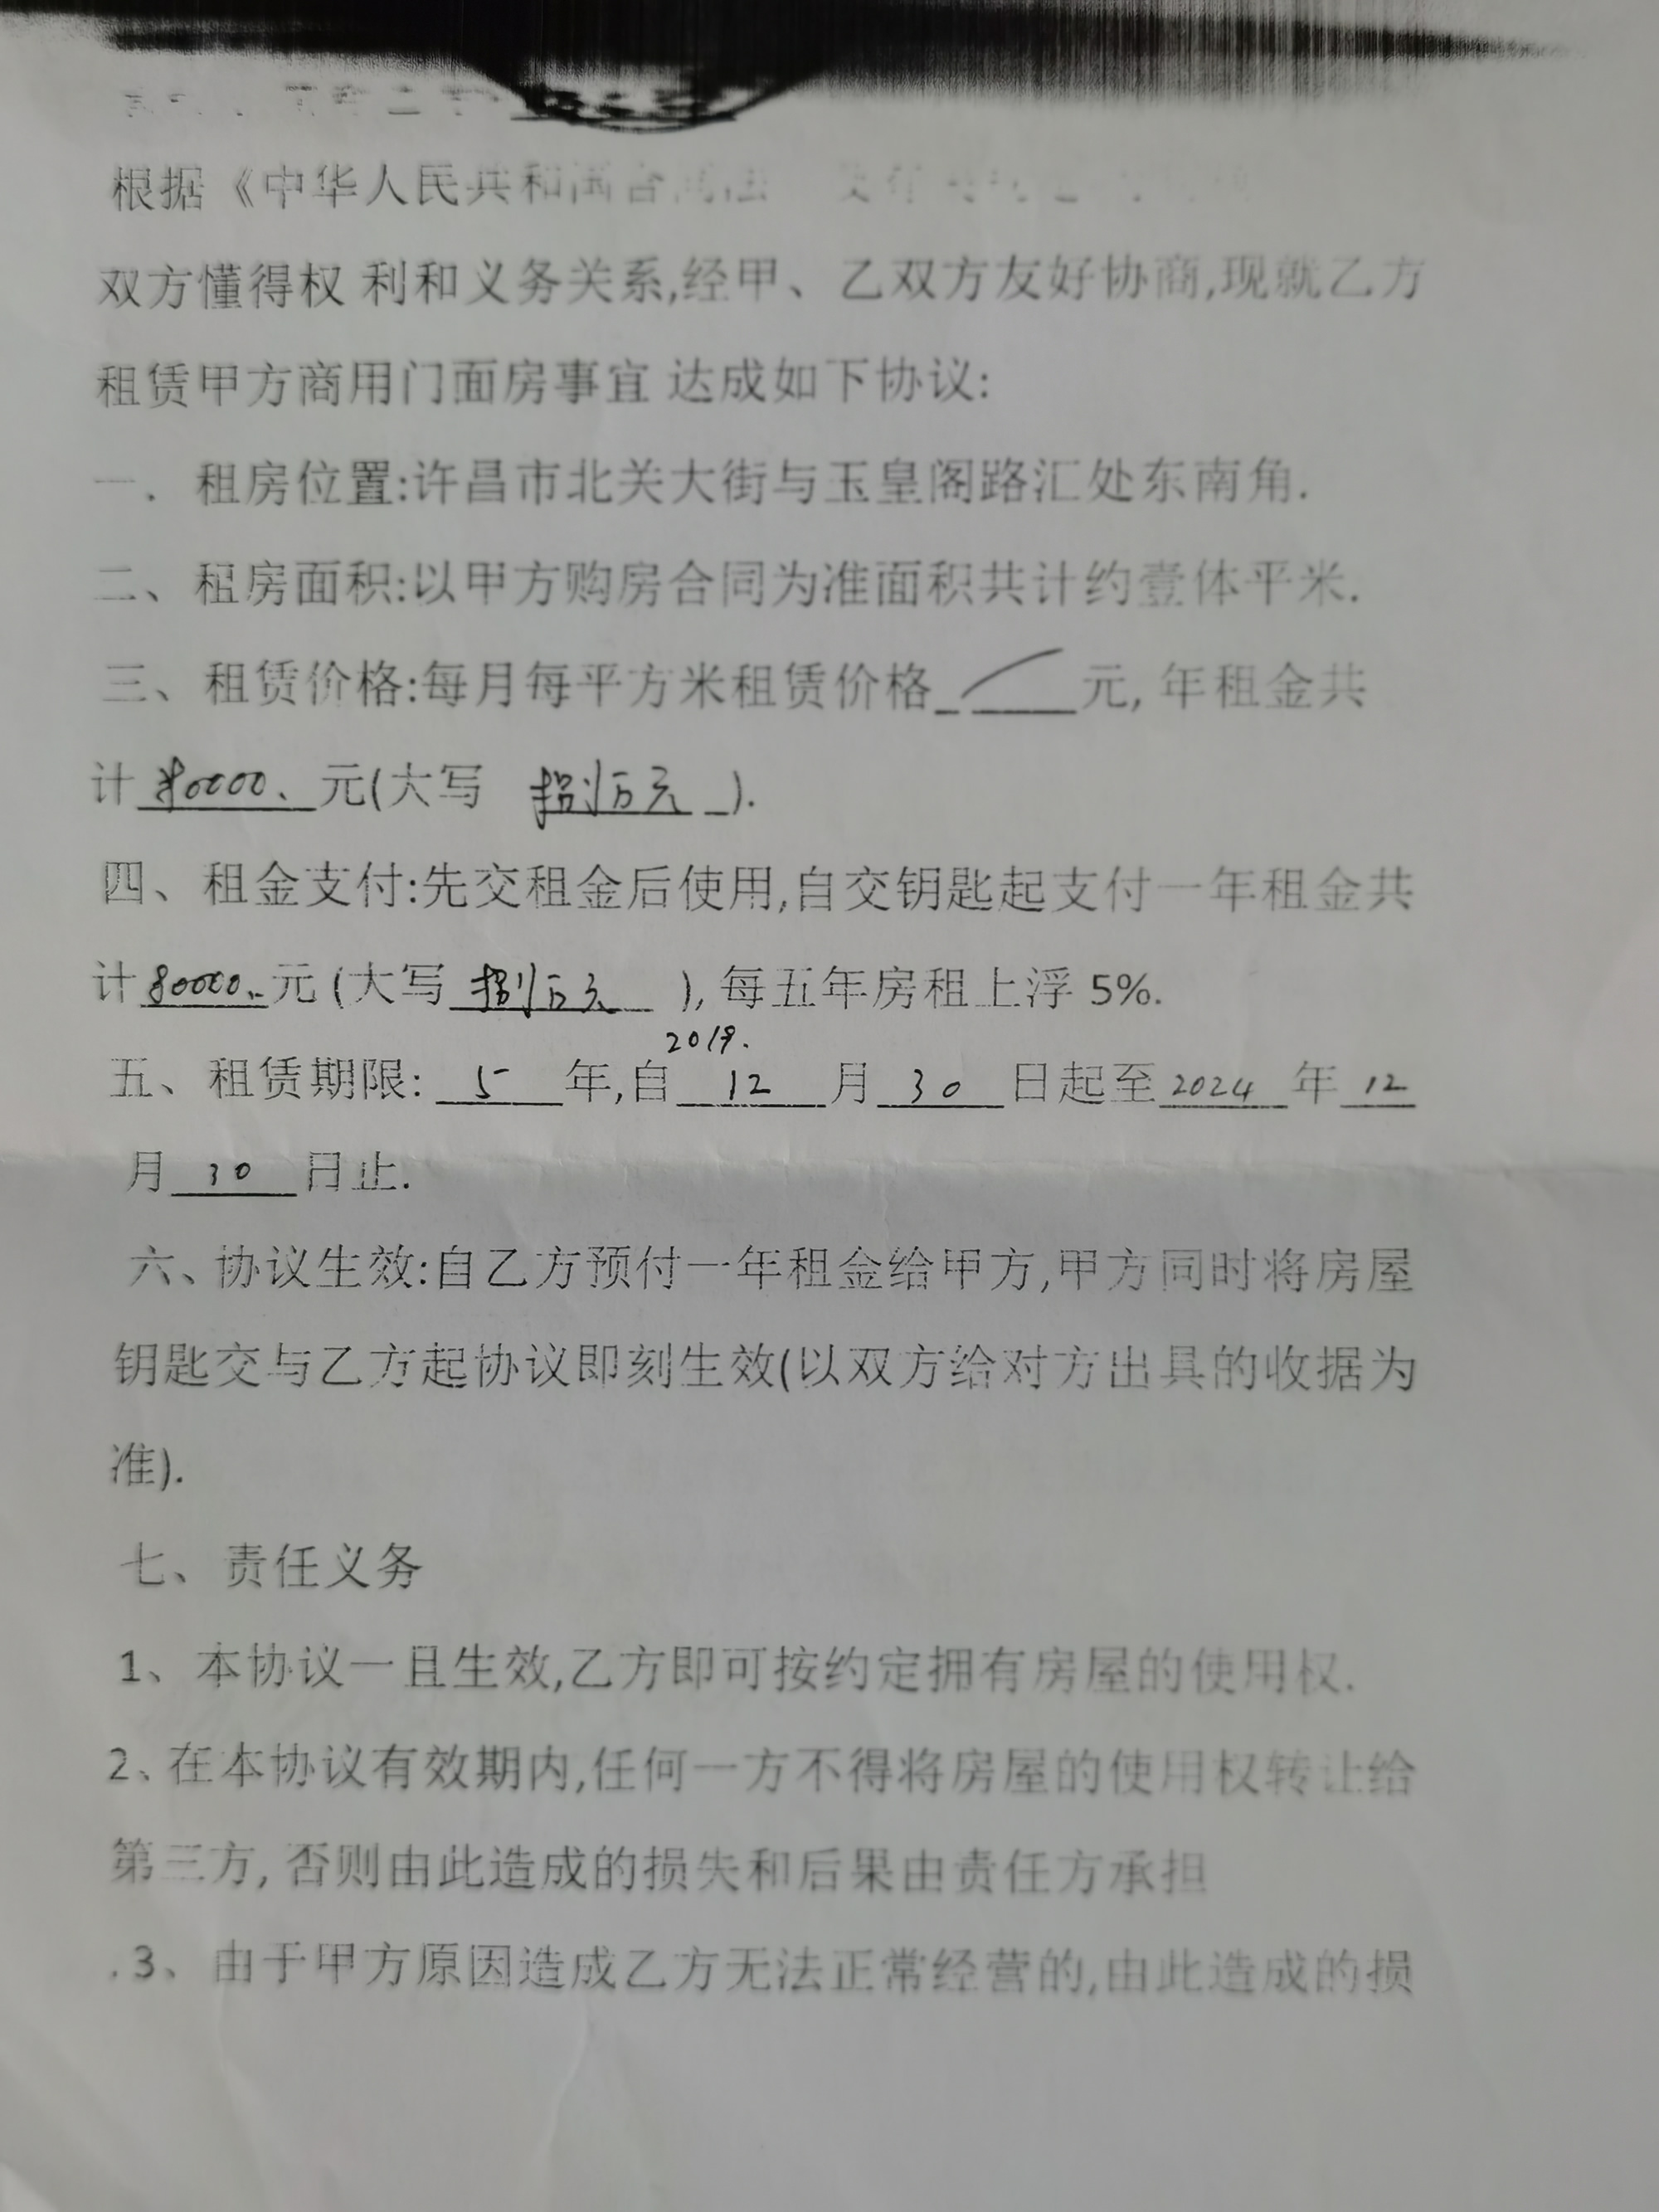 根据《中华人民共和国合同法
双方懂得权 利和义务关系,经甲、乙双方友好协商,现就乙方
租赁甲方商用门面房事宜 达成如下协议:
一. 租房位置:许昌市北关大街与玉皇阁路汇处东南角.
二、租房面积:以甲方购房合同为准面积共计约壹体平米.
三、租赁价格:每月每平方米租赁价格 元, 年租金共
计 80000、元(大写 捌万元 ).
四、租金支付:先交租金后使用,自交钥匙起支付一年租金共
计 80000、元 (大写 捌万元 ), 每五年房租上浮 5%.
2019.
五、租赁期限: 5 年,自 12 月 30 日起至 2024 年 12
月 30 日止.
六、协议生效:自乙方预付一年租金给甲方,甲方同时将房屋
钥匙交与乙方起协议即刻生效(以双方给对方出具的收据为
准).
七、责任义务
1、本协议一且生效,乙方即可按约定拥有房屋的使用权.
2、在本协议有效期内,任何一方不得将房屋的使用权转让给
第三方, 否则由此造成的损失和后果由责任方承担
.3、由于甲方原因造成乙方无法正常经营的,由此造成的损